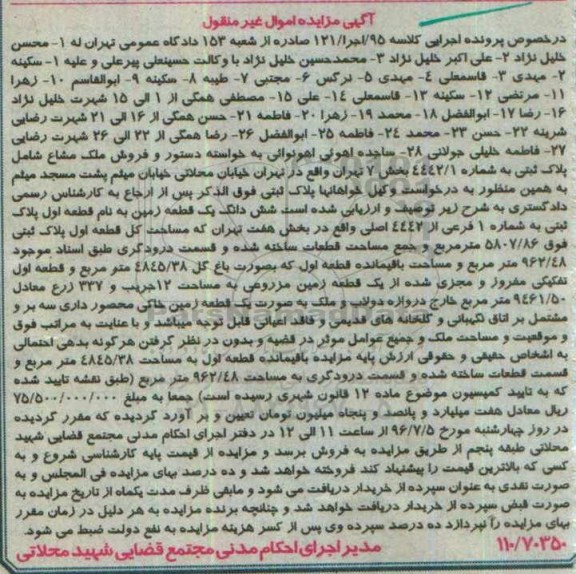 آگهی مزایده اموال غیر منقول
درخصوص پرونده اجرایی کلاسه ۹۵/اجرا/۱۲۱ صادره از شعبه ۱۵۳ دادگاه عمومی تهران له ۱- محسن
خلیل نژاد ۲- علی اکبر خلیل نژاد ۳- محمدحسین خلیل نژاد با وکالت حسینعلی پیرعلی و علیه ۱- سکینه
۲- مهدی ۳- قاسمعلی ۴- مهدی ۵- نرگس ۶- مجتبی ۷- طیبه ۸- سکینه ۹- ابوالقاسم ۱۰- زهرا
۱۱- مرتضی ۱۲- سکینه ۱۳- قاسمعلی ۱۴- علی ۱۵- مصطفی همگی از ۱ الی ۱۵ شهرت خلیل نژاد
۱۶- رضا ۱۷- ابوالفضل ۱۸- محمد ۱۹- زهرا ۲۰- فاطمه ۲۱- حسن همگی از ۱۶ الی ۲۱ شهرت رضایی
شرینه ۲۲- حسن ۲۳- محمد ۲۴- فاطمه ۲۵- ابوالفضل ۲۶- رضا همگی از ۲۲ الی ۲۶ شهرت رضایی
۲۷- فاطمه خلیلی جولانی ۲۸- ساجده اهوئی اهونوائی به خواسته دستور و فروش ملک مشاع شامل
پلاک ثبتی به شماره ۴۴۴۲/۱ بخش ۷ تهران واقع در تهران خیابان محلاتی خیابان میثم پشت مسجد میثم
به همین منظور به درخواست وکیل خواهانها پلاک ثبتی فوق الذکر پس از ارجاع به کارشناس رسمی
دادگستری به شرح زیر توصیف و ارزیابی شده است شش دانگ یک قطعه زمین به نام قطعه اول پلاک
ثبتی به شماره ۱ فرعی از ۴۴۴۲ اصلی واقع در بخش هفت تهران که مساحت کل قطعه اول پلاک ثبتی
فوق ۵۸۰۷/۸۶ مترمربع و جمع مساحت قطعات ساخته شده و قسمت درودگری طبق اسناد موجود
۹۶۲/۴۸ متر مربع و مساحت باقیمانده قطعه اول که بصورت باغ کل ۴۸۴۵/۳۸ متر مربع و قطعه اول
تفکیکی مفروز و مجزی شده از یک قطعه زمین مزروعی به مساحت ۱۲جریب و ۳۳۷ زرع معادل
۹۴۶۱/۵۰ متر مربع خارج دروازه دولاب و ملک به صورت یک قطعه زمین خاکی محصور داری سه بر و
مشتمل بر اتاق نگهبانی و گلخانه های قدیمی و فاقد اعیانی قابل توجه میباشد و با عنایت به مراتب فوق
و موقعیت و مساحت ملک و جمیع عوامل موثر در قضیه و بدون در نظر گرفتن هرگونه بدهی احتمالی
به اشخاص حقیقی و حقوقی ارزش پایه مزایده باقیمانده قطعه اول به مساحت ۴۸۴۵/۳۸ متر مربع و
قسمت قطعات ساخته شده و قسمت درودگری به مساحت ۹۶۲/۴۸ متر مربع (طبق نقشه تایید شده
که به تایید کمیسیون موضوع ماده ۱۲ قانون شهری رسیده است) جمعا به مبلغ ۷۵/۵۰۰/۰۰۰/۰۰۰
ریال معادل هفت میلیارد و پانصد و پنجاه میلیون تومان تعیین و بر آورد گردیده که مقرر گردیده
در روز چهارشنبه مورخ ۹۶/۷/۵ از ساعت ۱۱ الی ۱۲ در دفتر اجرای احکام مدنی مجتمع قضایی شهید
محلاتی طبقه پنجم از طریق مزایده به فروش برسد و مزایده از قیمت پایه کارشناسی شروع و به
کسی که بالاترین قیمت را پیشنهاد کند فروخته خواهد شد و ده درصد بهای مزایده فی المجلس و به
صورت نقدی به عنوان سپرده از خریدار دریافت می شود و مابقی ظرف مدت یکماه از تاریخ مزایده به
صورت قبض سپرده از خریدار دریافت خواهد شد و چنانچه برنده مزایده به هر دلیل در زمان مقرر
بهای مزایده را نپردازد ده درصد سپرده وی پس از کسر هزینه مزایده به نفع دولت ضبط می شود.
۱۱۰/۷۰۳۵۰ مدیر اجرای احکام مدنی مجتمع قضایی شهید محلاتی